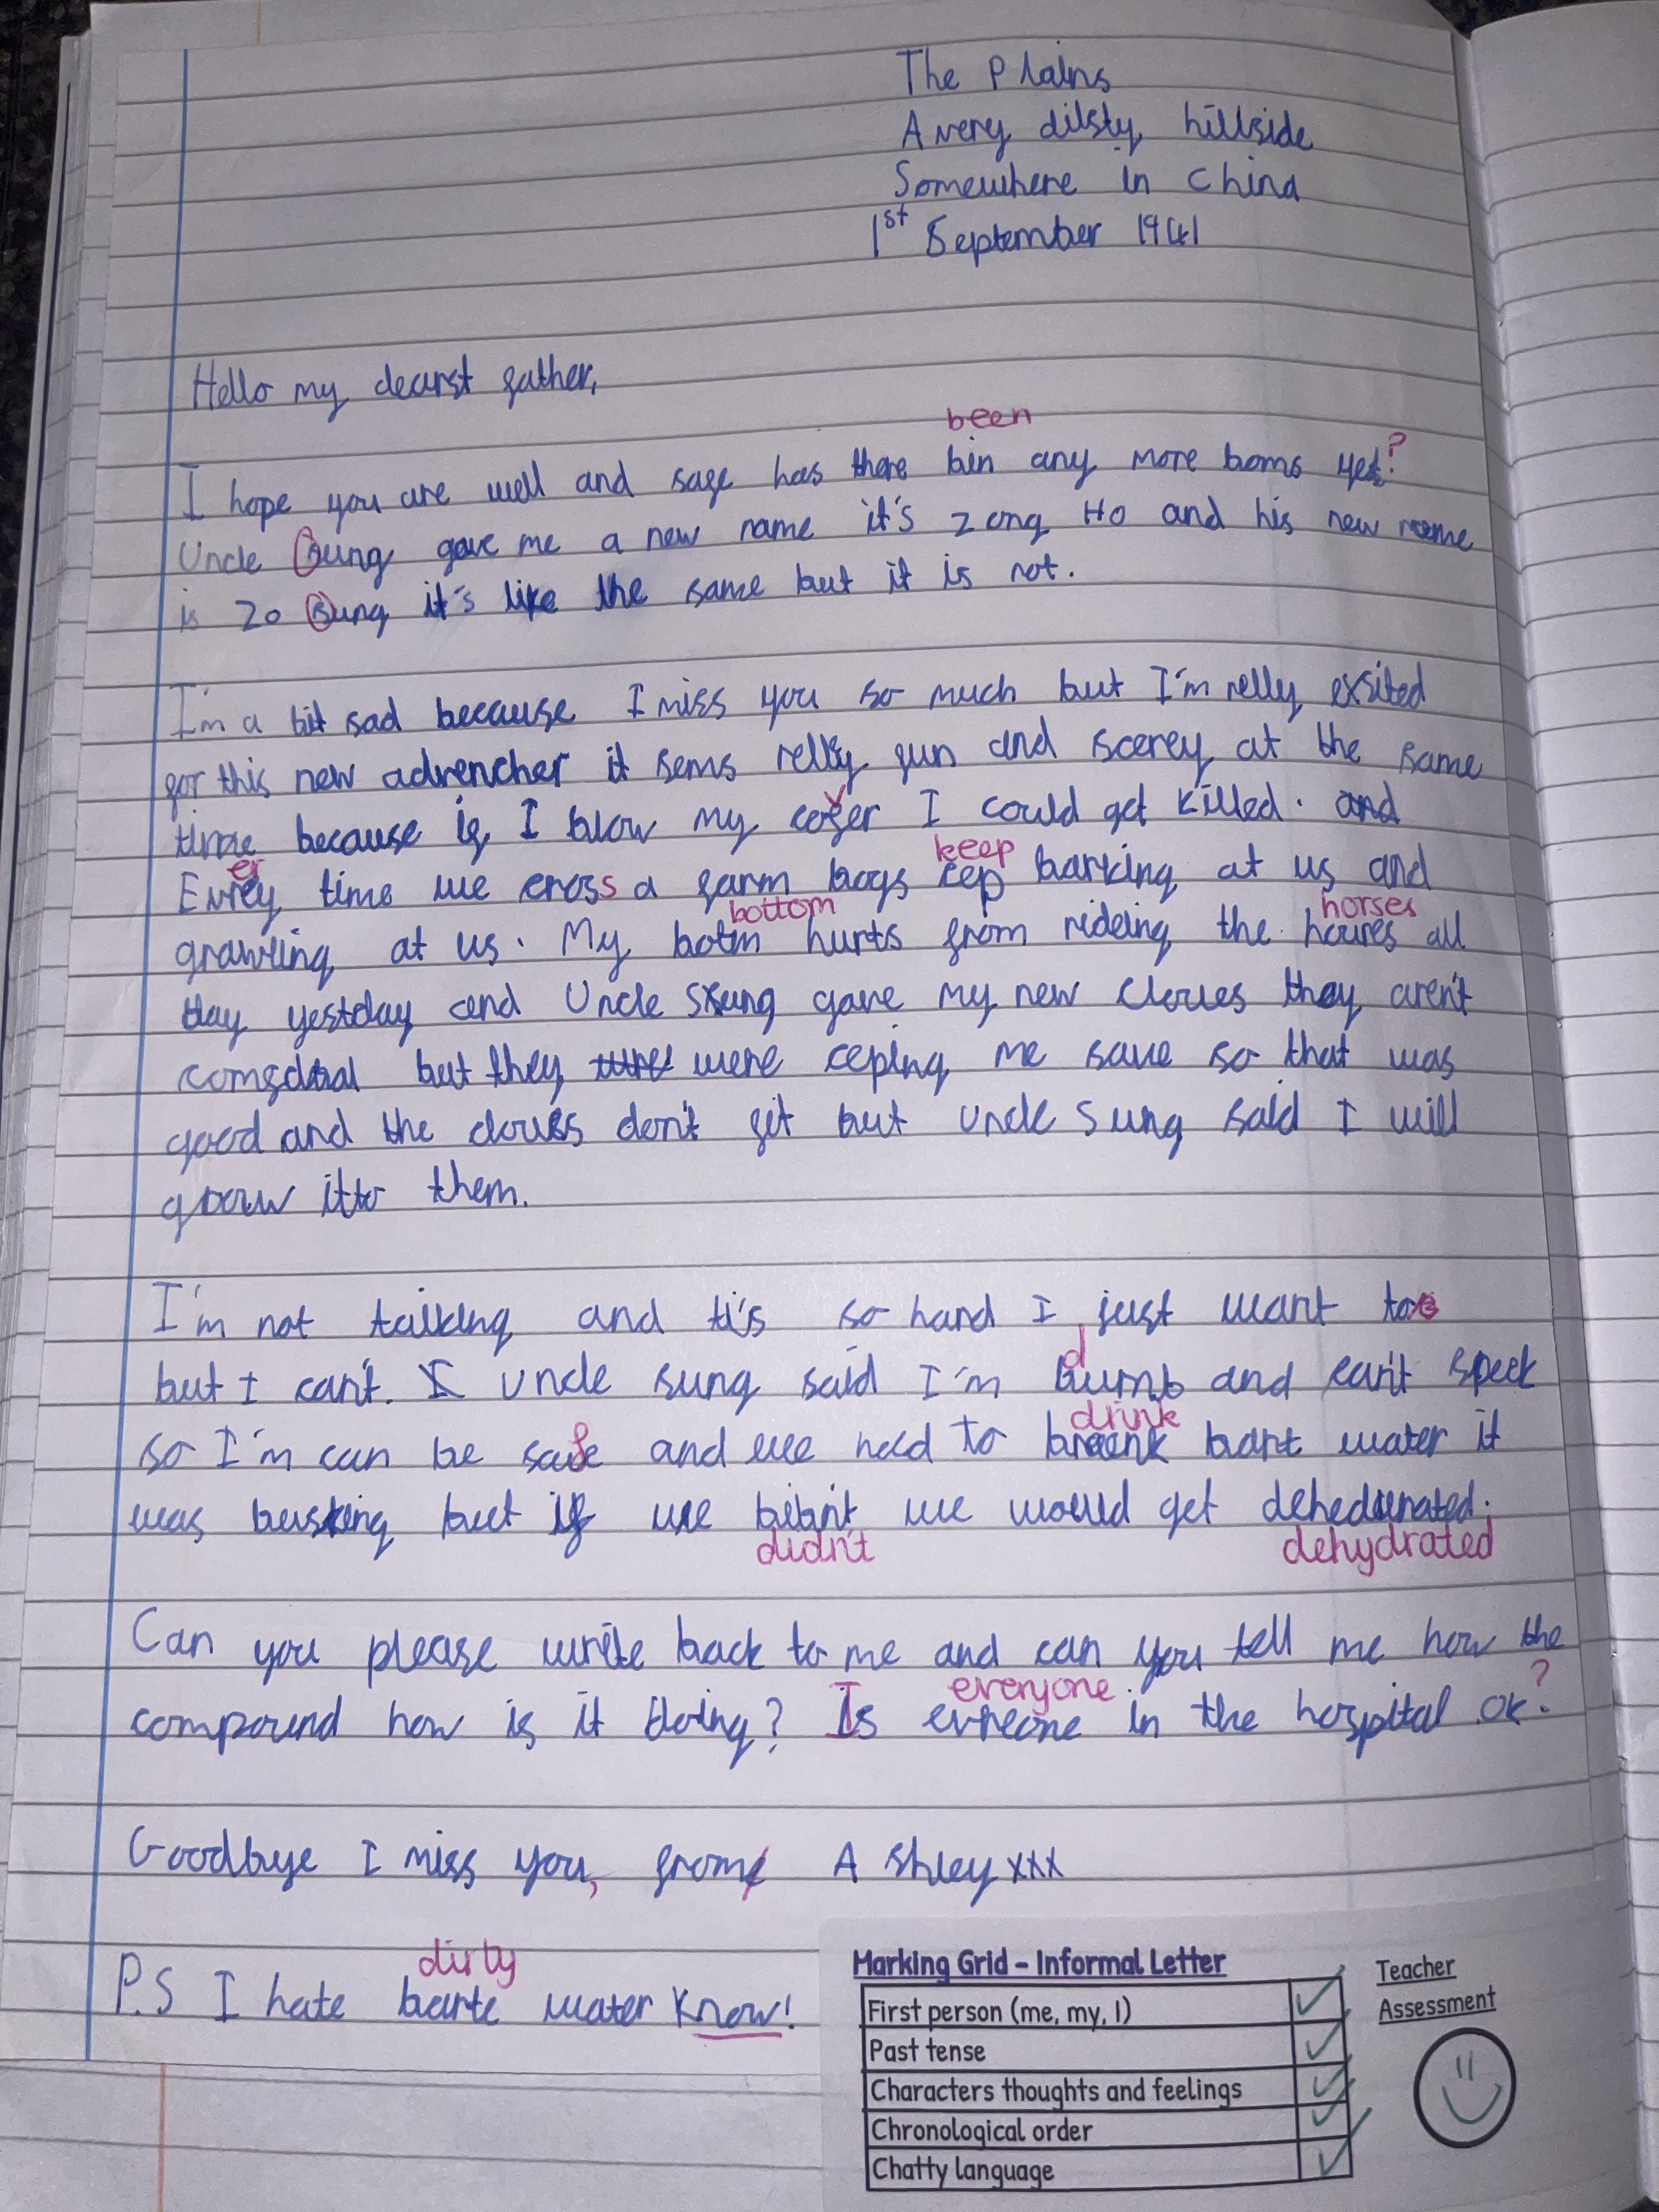 The Plains
A very dilsty hillside
Somewhere in China
1st September 1941
Hello my dearst father,
been
I hope you are well and safe has there bin any more boms yet?
Uncle Sung gave me a new name it's Zong Ho and his new name
is Zo Sung it's like the same but it is not.
I'm a bit sad because I miss you so much but I'm relly exsited
for this new advencher it sems relly fun and scerey at the same
time because if I blow my cover I could get killed. and
er keep
Evrey time we cross a farm bogs cep barking at us and
bottom horses
grawling at us. My botm hurts from rideing the hourses all
day yestday and Uncle Sung gave my new cloves they aren't
but they were ceping me save so that was
good and the cloves don't fit but uncle Sung said I will
grow itto them.
I'm not talking and ti's so hard I just want to
d
but I can't. Uncle Sung said I'm bumb and can't speck
drink
so I'm can be safe and we need to brenk bart water it
was buskting but if we bibn't we would get
didn't dehydrated
Can you please write back to me and can you tell me how the
everyone
compound how is it doing? Is evreone in the hospital ok?
Goodbye I miss you, from Ashley xxx
dirty
P.S I hate barte water know!
Marking Grid – Informal Letter
Teacher
Assessment
First person (me, my, I) ✓
Past tense ✓
Characters thoughts and feelings ✓
Chronological order ✓
Chatty language ✓